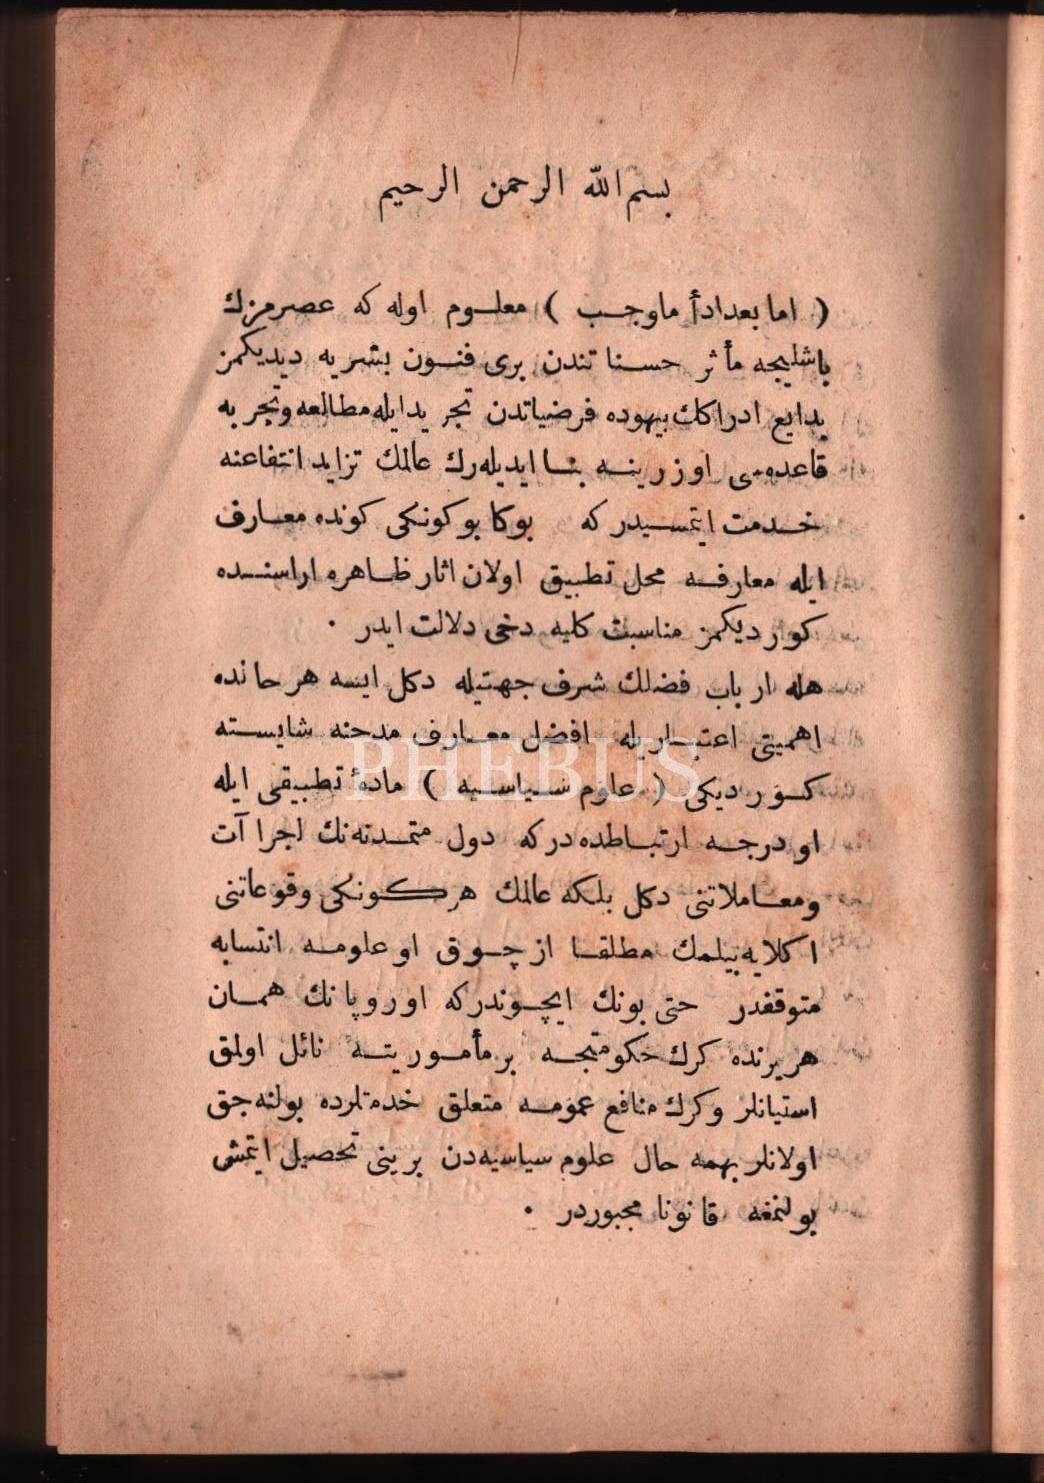 بسم الله الرحمن الرحيم
( اما بعد اداٴ ماوجب ) معلوم اوله كه عصرمزك
باشليجه مأثر حسناتندن برى فنون بشريه ديديكمز
بدايع ادراكك بيهوده فرضياتدن تجريد ايله مطالعه وتجربه
قاعده‌سى اوزرينه بنا ايديله‌رك عالمك تزايد انتفاعنه
خدمت ايتمسيدر كه بوكا بوكونكى كونده معارف
ايله معارفه محل تطبيق اولان اثار ظاهره اراسنده
كورديكمز مناسبت كليه دخى دلالت ايدر ٠
هله ارباب فضلك شرف جهتيله دكل ايسه هر حالده
اهميتى اعتباريله افضل معارف مدحنه شايسته
كورديكى ( علوم سياسيه ) مادۀ تطبيقى ايله
او درجه ارتباطده در كه دول متمدنه‌نك اجراآت
ومعاملاتنى دكل بلكه عالمك هر كونكى وقوعاتنى
اكلايه‌بيلمك مطلقا از چوق او علومه انتسابه
متوقفدر حتى بونك ايچوندر كه اوروپانك همان
هر يرنده كرك حكومتجه بر مأموريته نائل اولمق
استيانلر وكرك منافع عموميه متعلق خدمتلرده بولنه‌جق
اولانلر بهمه حال علوم سياسيه‌دن برينى تحصيل ايتمش
بولنمغه قانونا مجبوردر ٠
PHEBUS